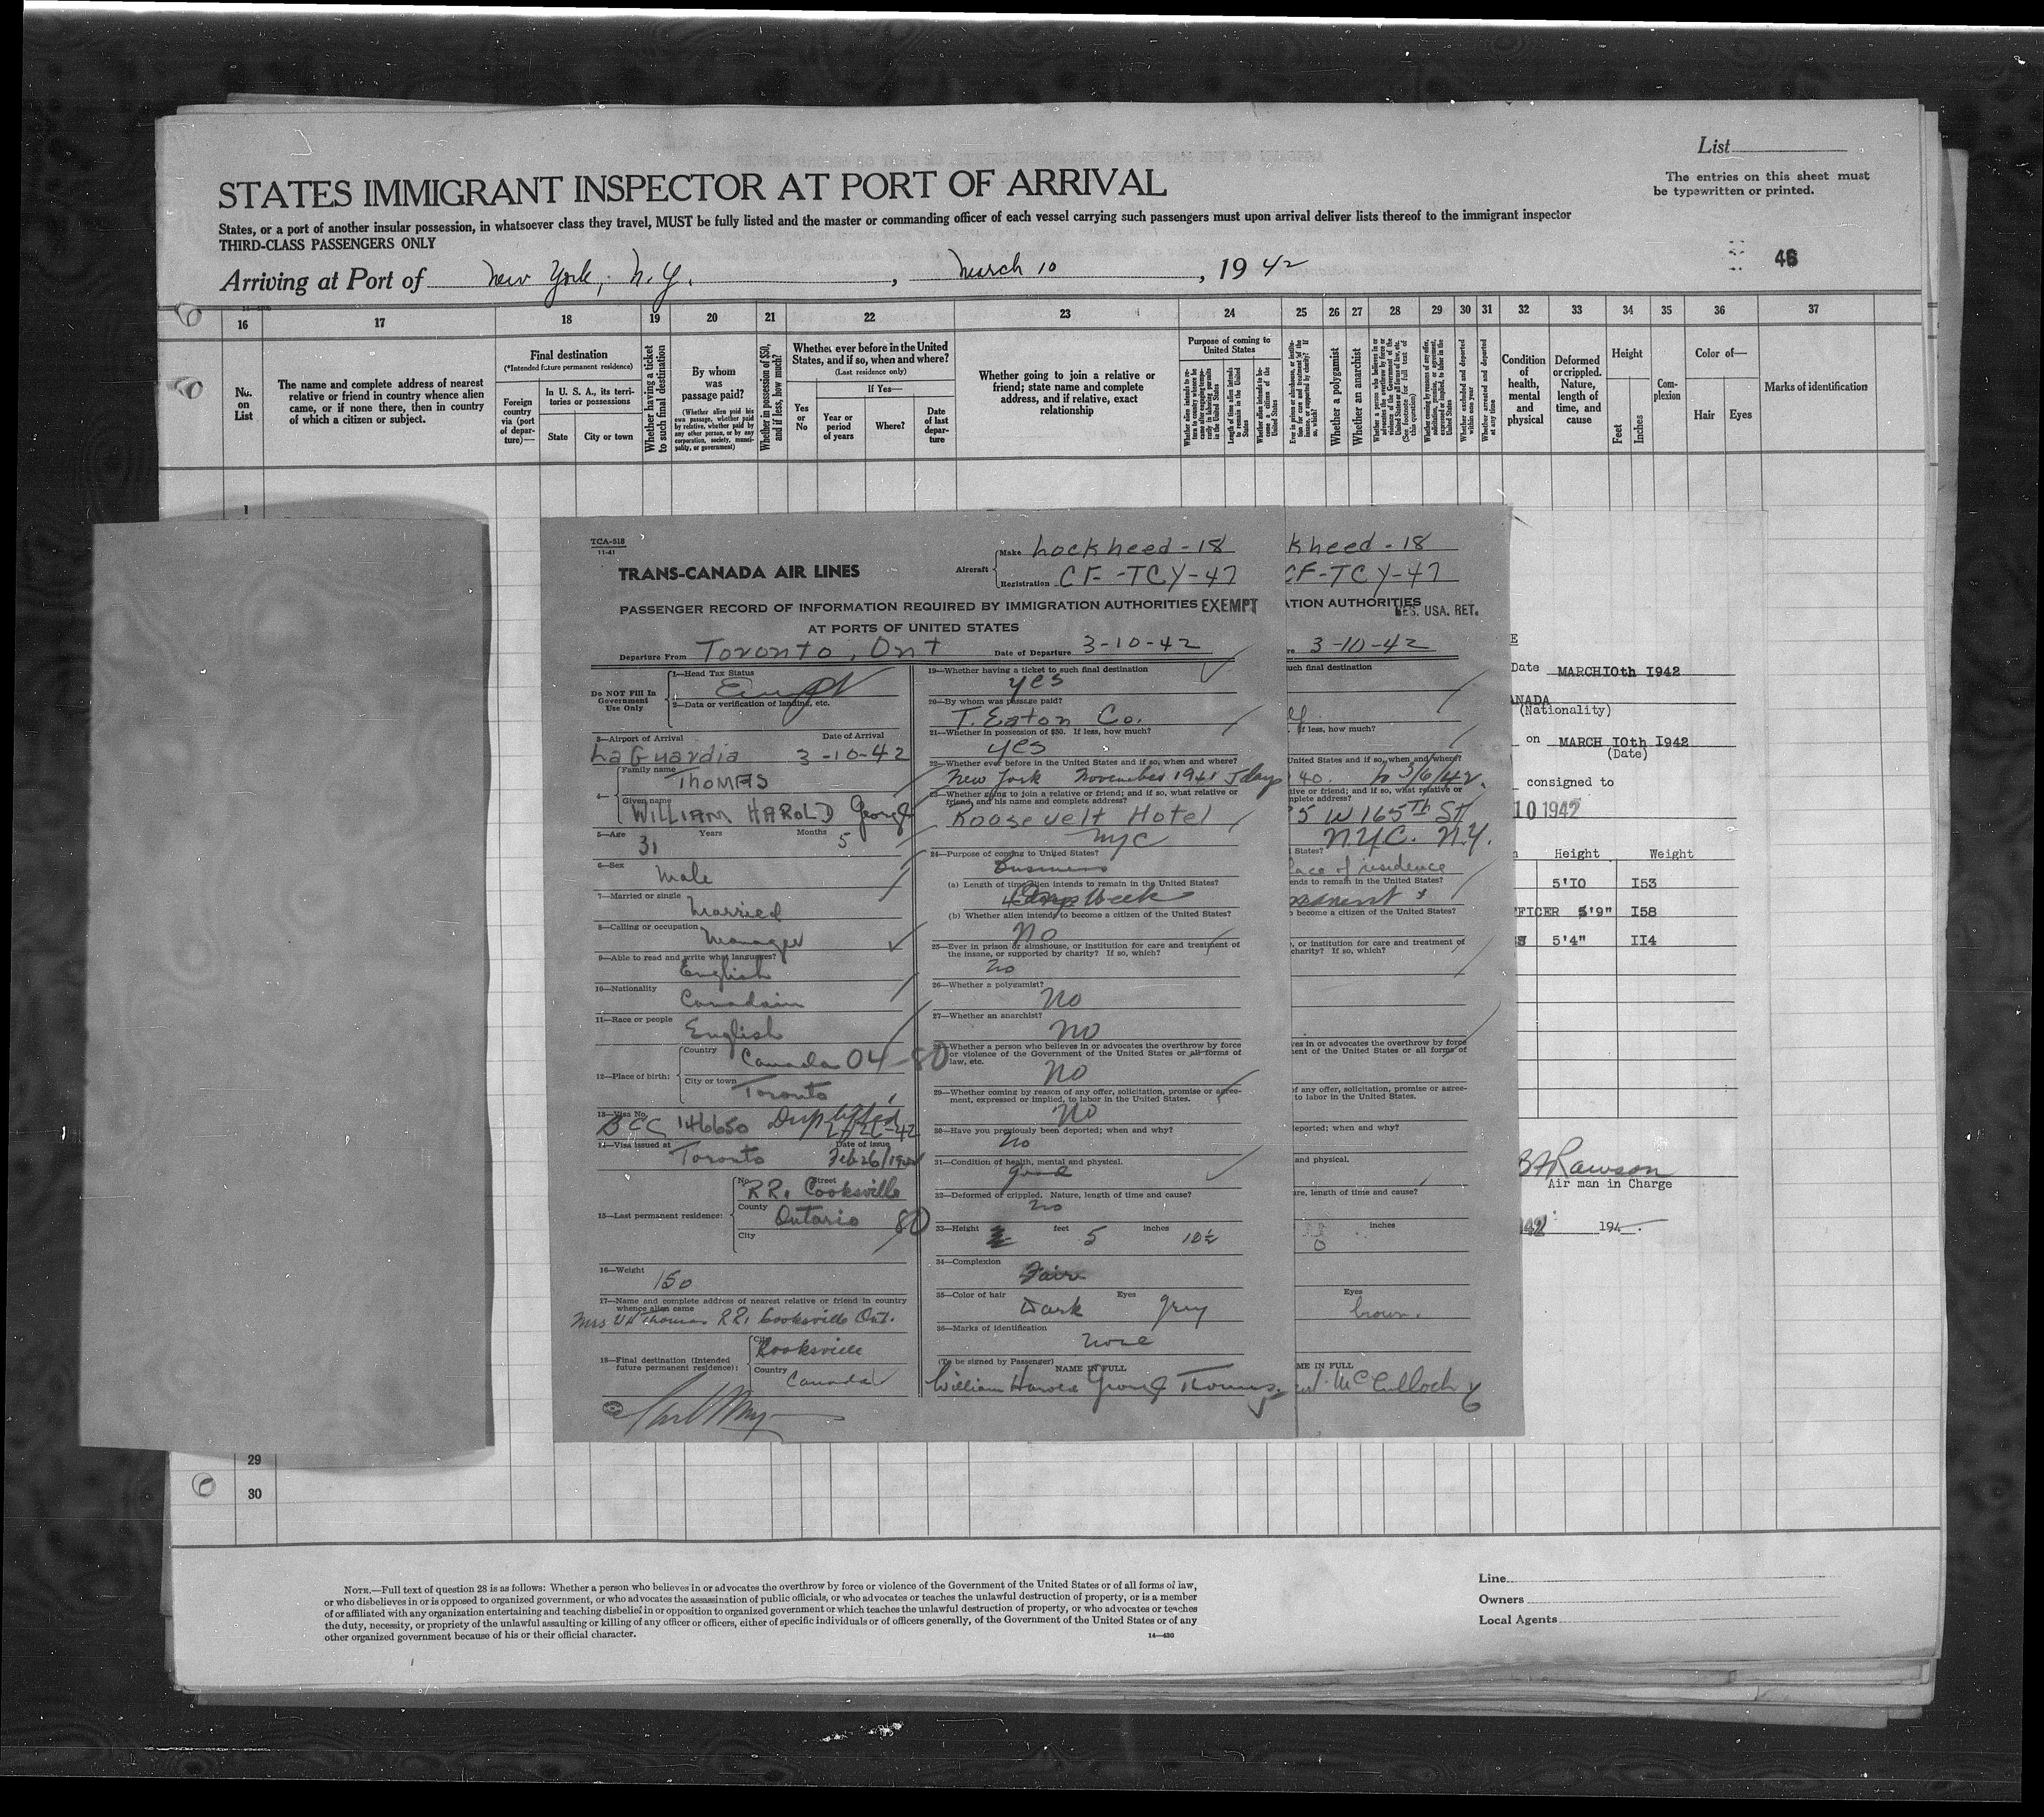 List
The entries on this sheet must
be typewritten or printed.
STATES IMMIGRANT INSPECTOR AT PORT OF ARRIVAL
States, or a port of another insular possession, in whatsoever class they travel, MUST be fully listed and the master or commanding officer of each vessel carrying such passengers must upon arrival deliver lists thereof to the immigrant inspector
THIRD-CLASS PASSENGERS ONLY
Arriving at Port of New York, N.Y. , March 10 , 19 42
46
16 17 18 19 20 21 22 23 24 25 26 27 28 29 30 31 32 33 34 35 36 37
No.
on
List
The name and complete address of nearest
relative or friend in country whence alien
came, or if none there, then in country
of which a citizen or subject.
Final destination
(*Intended future permanent residence)
Foreign
country
via (port
of depar-
ture)—
In U. S. A., its terri-
tories or possessions
State
City or town
Whether having a ticket
to such final destination
By whom
was
passage paid?
(Whether alien paid his
own passage, whether paid
by relative, whether paid by
any other person, or by any
corporation, society, munici-
pality, or government)
Whether in possession of $50,
and if less, how much?
Whether ever before in the United
States, and if so, when and where?
(Last residence only)
Yes
or
No
If Yes—
Year or
period
of years
Where?
Date
of last
depar-
ture
Whether going to join a relative or
friend; state name and complete
address, and if relative, exact
relationship
Purpose of coming to
United States
Length of time alien intends
to remain in the United
States
Whether alien intends to be-
come a citizen of the
United States
Whether a polygamist
Whether an anarchist
Whether excluded and deported
within one year
Whether arrested and deported
at any time
Condition
of
health,
mental
and
physical
Deformed
or crippled.
Nature,
length of
time, and
cause
Height
Feet
Inches
Com-
plexion
Color of—
Hair
Eyes
Marks of identification
1
TCA-518
11-41
TRANS-CANADA AIR LINES
Aircraft
Make Lockheed-18
Registration CF-TCY-47
PASSENGER RECORD OF INFORMATION REQUIRED BY IMMIGRATION AUTHORITIES EXEMPT
AT PORTS OF UNITED STATES
Departure From Toronto, Ont Date of Departure 3-10-42
Do NOT Fill In
Government
Use Only
1—Head Tax Status
2—Data or verification of landing, etc.
3—Airport of Arrival Date of Arrival
LaGuardia 3-10-42
4— Family name
THOMAS
Given name
WILLIAM HAROLD George
5—Age Years Months
31 5
6—Sex
Male
7—Married or single
Married
8—Calling or occupation
Manager
9—Able to read and write what languages?
English
10—Nationality
Canadain
11—Race or people
English
12—Place of birth:
Country
Canada 04 80
City or town
Toronto
13—Visa No.
BCC 146650
14—Visa issued at Date of issue
Toronto Feb 26/1942
15—Last permanent residence:
No. Street
RR1 Cooksville
County
Ontario 80
City
16—Weight
150
17—Name and complete address of nearest relative or friend in country
whence alien came
Mrs WH Thomas RR1 Cooksville Ont.
18—Final destination (Intended
future permanent residence):
City
Cooksville
Country
Canada
19—Whether having a ticket to such final destination
yes
20—By whom was passage paid?
T. Eaton Co.
21—Whether in possession of $50. If less, how much?
yes
22—Whether ever before in the United States and if so, when and where?
New York November 1941 5 days
23—Whether going to join a relative or friend; and if so, what relative or
friend, and his name and complete address?
Roosevelt Hotel
NYC
24—Purpose of coming to United States?
Business
(a) Length of time alien intends to remain in the United States?
Week
(b) Whether alien intends to become a citizen of the United States?
No
25—Ever in prison or almshouse, or institution for care and treatment of
the insane, or supported by charity? If so, which?
no
26—Whether a polygamist?
No
27—Whether an anarchist?
No
28—Whether a person who believes in or advocates the overthrow by force
or violence of the Government of the United States or all forms of
law, etc.
No
29—Whether coming by reason of any offer, solicitation, promise or agree-
ment, expressed or implied, to labor in the United States.
No
30—Have you previously been deported; when and why?
No
31—Condition of health, mental and physical.
good
32—Deformed or crippled. Nature, length of time and cause?
no
33—Height feet inches
5 10½
34—Complexion
Fair
35—Color of hair Eyes
Dark grey
36—Marks of identification
none
(To be signed by Passenger) NAME IN FULL
William Harold George Thomas
kheed-18
CF-TCY-47
TION AUTHORITIES
RES. USA. RET.
3-10-42
such final destination
If less, how much?
United States and if so, when and where?
40. 3/6/42
tive or friend; and if so, what relative or
mplete address?
5 W 165TH St
N.Y.C. N.Y.
States?
lace of residence
ends to remain in the United States?
o become a citizen of the United States?
e, or institution for care and treatment of
charity? If so, which?
ves in or advocates the overthrow by force
ment of the United States or all forms of
of any offer, solicitation, promise or agree-
to labor in the United States.
deported; when and why?
and physical.
ure, length of time and cause?
inches
Eyes
brown.
ME IN FULL
McCulloch
E
Date MARCH10th 1942
ANADA
(Nationality)
on MARCH 10th 1942
(Date)
consigned to
10 1942
Height Weight
5'10 153
FFICER 5'9" 158
5'4" 114
Rawson
Air man in Charge
194
29
30
NOTE.—Full text of question 28 is as follows: Whether a person who believes in or advocates the overthrow by force or violence of the Government of the United States or of all forms of law,
or who disbelieves in or is opposed to organized government, or who advocates the assassination of public officials, or who advocates or teaches the unlawful destruction of property, or is a member
of or affiliated with any organization entertaining and teaching disbelief in or opposition to organized government or which teaches the unlawful destruction of property, or who advocates or teaches
the duty, necessity, or propriety of the unlawful assaulting or killing of any officer or officers, either of specific individuals or of officers generally, of the Government of the United States or of any
other organized government because of his or their official character.
14—430
Line
Owners
Local Agents